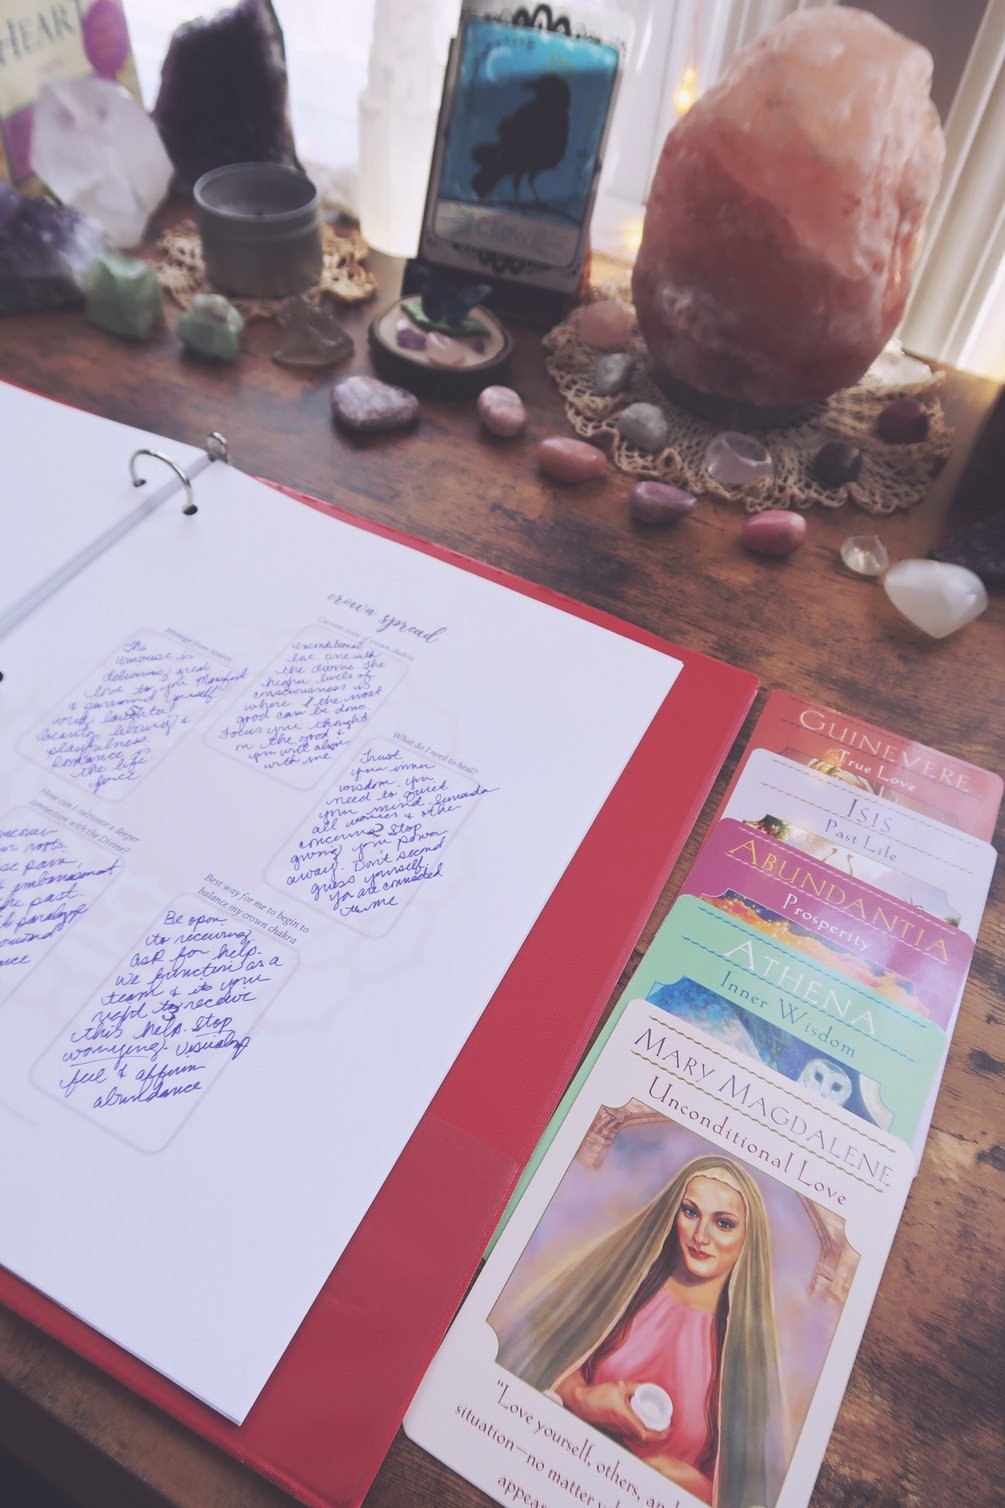 HEART
CROW
crown spread
Message from Source
The
universe is
delivering great
love to you Manifest
& surround yourself
with laughter
beauty, luxury &
playfulness.
Romance is
the life
force
Current state of crown chakra
Unconditional
love one with
the divine. The
higher levels of
consciousness is
where the most
good can be done.
Focus your thoughts
on the good &
you will align
with me
What do I need to heal?
Trust
your inner
wisdom. You
need to quiet
your mind. Surrender
all worries & other
concerns. Stop
giving your power
away. Don't second
guess yourself.
You are connected
to me
How can I cultivate a deeper
connection with the Divine?
roots
pain,
& embarrassment
the past.
paralyze
Best way for me to begin to
balance my crown chakra
Be open
to receiving.
ask for help.
We function as a
team & its your
right to receive
this help. Stop
worrying. Visualize
feel & affirm
abundance
GUINEVERE
True Love
ISIS
Past Life
ABUNDANTIA
Prosperity
ATHENA
Inner Wisdom
MARY MAGDALENE
Unconditional Love
"Love yourself, others, and
situation—no matter
appear